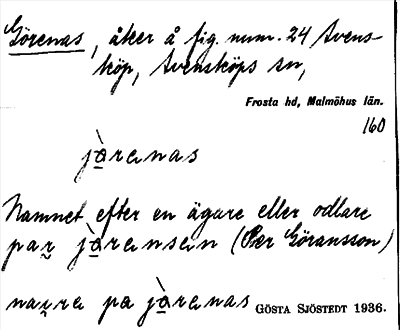 Görenas, åker å fig. num. 24 Svens-
köp, Svensköps sn,
Frosta hd, Malmöhus län.
160
jòrenas
Namnet efter en ägare eller odlare
par jòransan (Per Göransson)
narra pa jòrenas GÖSTA SJÖSTEDT 1936.